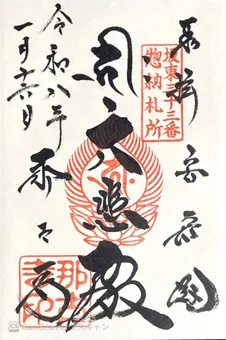 奉拝 安房国
坂東三十三番
惣納札所
大悲殿
令和八年
一月十六日
那古寺